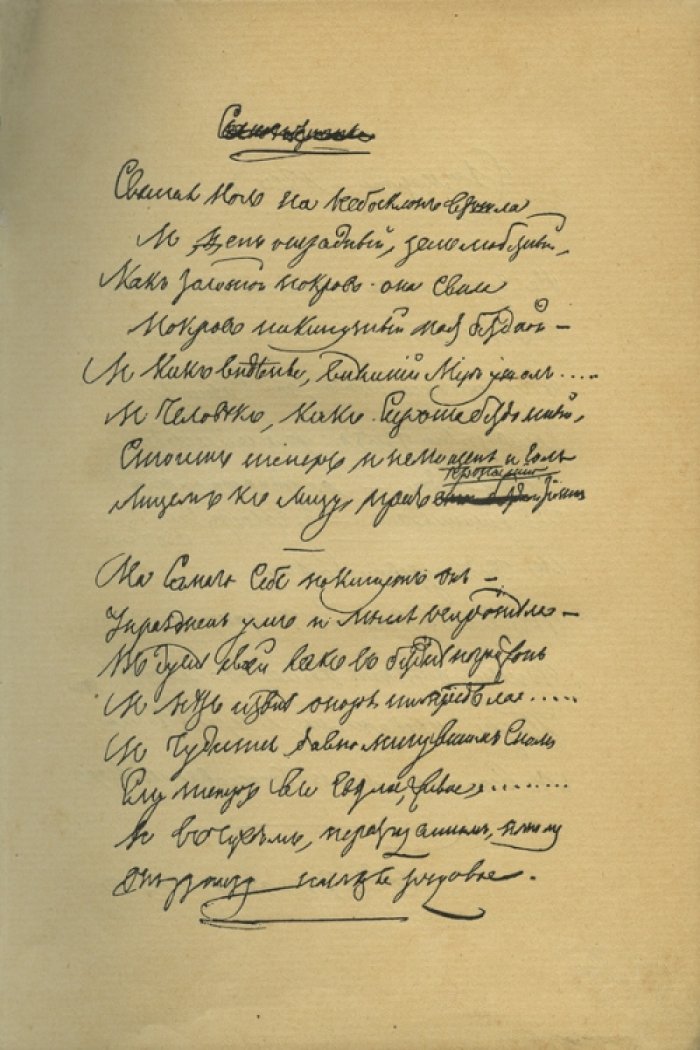 Святая ночь на небосклонъ взошла
И день отрадный, день любезный,
Какъ золотой покровъ она свила
Покровъ накинутый надъ бездной —
И какъ виденье, внѣшній міръ ушелъ.....
И Человѣкъ, какъ Сирота бездомный,
Стоитъ теперь и немощенъ и голъ
пропастію
Лицемъ къ лицу предъ темной

На Самаго Себя покинутъ онъ —
Упраздненъ умъ и мысль осиротѣла —
Въ душѣ своей какъ въ безднѣ погруженъ
И нѣтъ извнѣ опоры ни предѣла.....
И Чудится давно минувшимъ Сномъ
Ему теперь все Свѣтлое, живое........
И въ чуждомъ, неразгаданномъ, ночномъ
Онъ узнаетъ наслѣдье родовое.